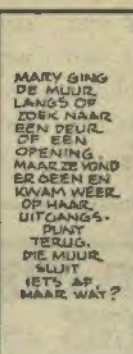 MARY GING
DE MUUR
LANGS OP
ZOEK NAAR
EEN DEUR
OF EEN
OPENING,
MAAR ZE VOND
ER GEEN EN
KWAM WEER
OP HAAR
UITGANGS-
PUNT
TERUG.
DIE MUUR
SLUIT
IETS AF,
MAAR WAT?